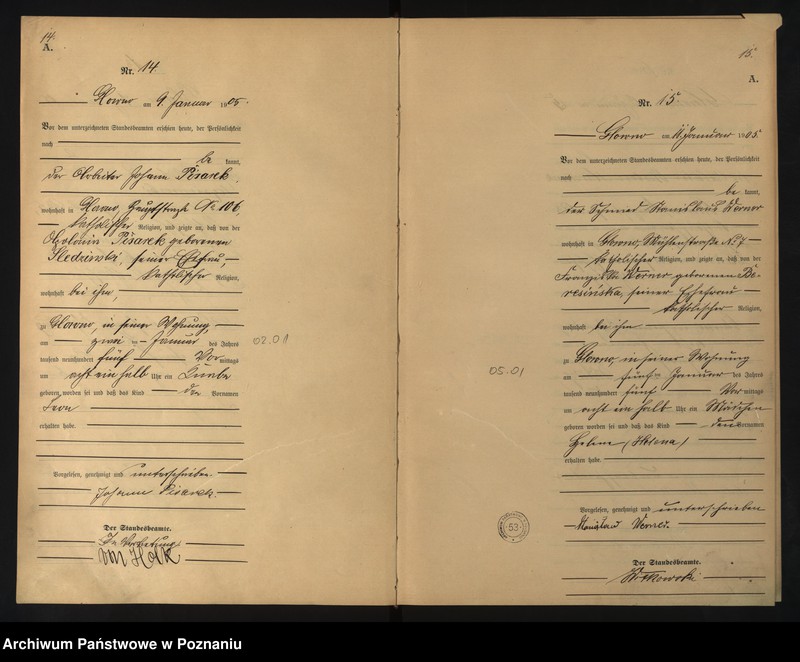 14.
A.
Nr. 14.
am 9. Januar 1905.
Vor dem unterzeichneten Standesbeamten erschien heute, der Persönlichkeit
nach
be kannt,
der Arbeiter Johann Pisarek,
wohnhaft in Hauptstraße No 106,
katholischer Religion, und zeigte an, daß von der
Pisarek geborenen
seiner Ehefrau
katholischer Religion,
wohnhaft bei ihm,
zu in seiner Wohnung
am zwei ten Januar des Jahres
tausend neunhundert fünf Vor mittags
um acht ein halb Uhr ein Knabe
geboren worden sei und daß das Kind den Vornamen
Leon
erhalten habe.
Vorgelesen, genehmigt und unterschrieben
Johann Pisarek.
Der Standesbeamte.
In Vertretung
von
02.01
15.
A.
Nr. 15.
am Januar 1905
Vor dem unterzeichneten Standesbeamten erschien heute, der Persönlichkeit
nach
be kannt,
der Schmied Stanislaus Werner
wohnhaft in Mühlenstraße No 7
katholischer Religion, und zeigte an, daß von der
Franziska Werner geborenen Be-
resińska, seiner Ehefrau
katholischer Religion,
wohnhaft bei ihm
zu in seiner Wohnung
am fünf ten Januar des Jahres
tausend neunhundert fünf Vor mittags
um acht ein halb Uhr ein Mädchen
geboren worden sei und daß das Kind den Vornamen
Helene (Helena)
erhalten habe.
Vorgelesen, genehmigt und unterschrieben
Stanisław Werner.
Der Standesbeamte.
Witkowski
05.01
53
Archiwum Państwowe w Poznaniu